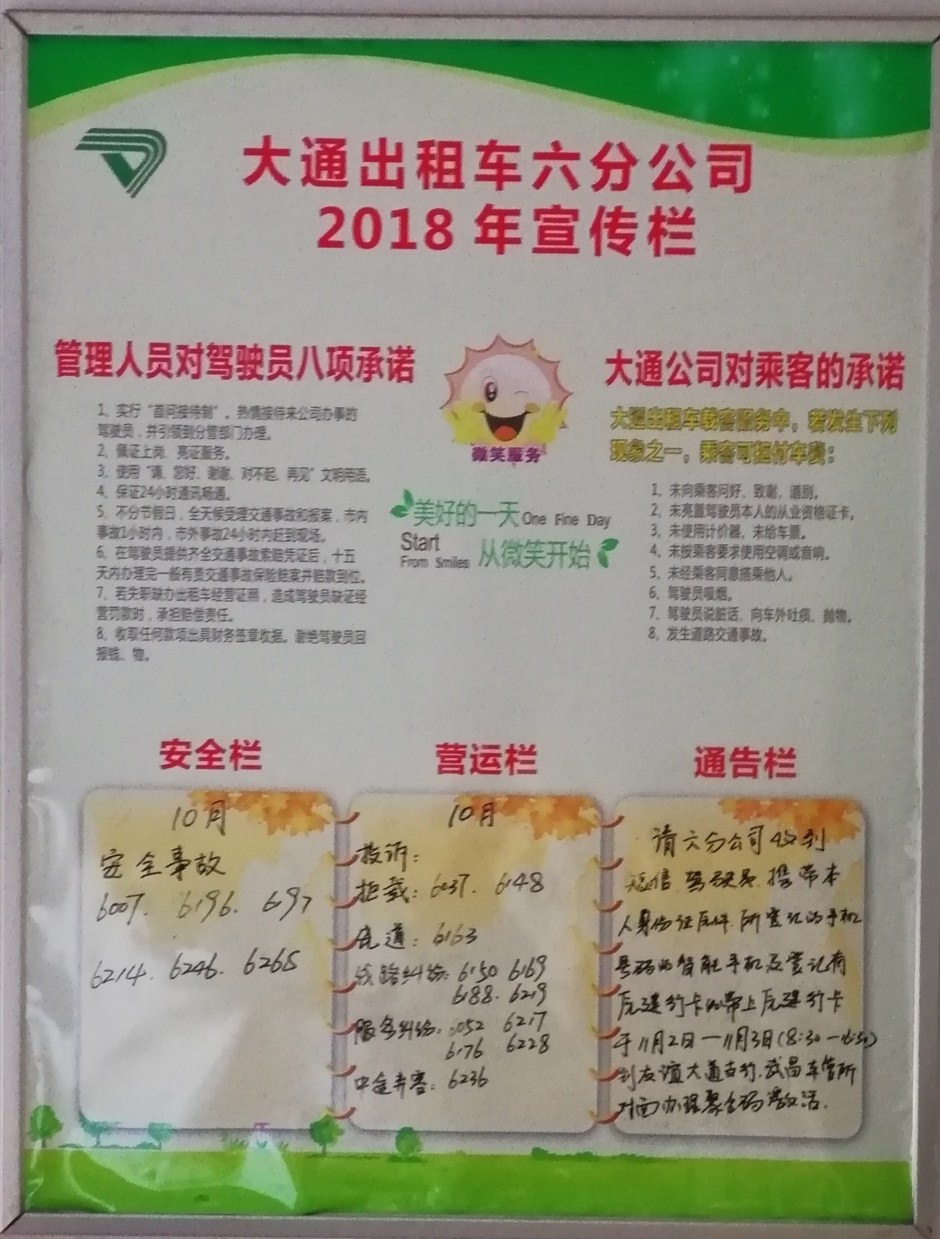 大通出租车六分公司
2018 年宣传栏
管理人员对驾驶员八项承诺
1、实行“首问接待制”。热情接待来公司办事的
驾驶员，并引领到分管部门办理。
2、佩证上岗、亮证服务。
3、使用“请、您好、谢谢、对不起、再见”文明用语。
4、保证24小时通讯畅通。
5、不分节假日，全天候受理交通事故和报案，市内
事故1小时内，市外事故24小时内赶到现场。
6、在驾驶员提供齐全交通事故索赔凭证后，十五
天内办理完一般有责交通事故保险赔案并赔款到位。
7、若失职缺办出租车经营证照，造成驾驶员缺证经
营罚款时，承担赔偿责任。
8、收取任何款项出具财务签章收据。谢绝驾驶员回
报钱、物。
微笑服务
美好的一天 One Fine Day
Start
From Smiles 从微笑开始
大通公司对乘客的承诺
大通出租车载客服务中，若发生下列
现象之一，乘客可拒付车费：
1、未向乘客问好、致谢、道别。
2、未亮置驾驶员本人的从业资格证卡。
3、未使用计价器、未给车票。
4、未按乘客要求使用空调或音响。
5、未经乘客同意搭乘他人。
6、驾驶员吸烟。
7、驾驶员说脏话、向车外吐痰、抛物。
8、发生道路交通事故。
安全栏
10月
安全事故
6007. 6196. 6197
6214. 6246. 6265
营运栏
10月
投诉：
拒载：6037. 6148
绕道：6163
线路纠纷：6150 6169
6188. 6219
服务纠纷：052 6217
6176 6228
中途弃客：6236
通告栏
请六分公司收到
短信 驾驶员 携带本
人身份证原件.所登记的手机
号码的智能手机及登记有
行卡的带上 行卡
于11月2日—11月3日(8:30—16:30)
到友谊大道 武昌车管所
对面办理聚合码激活.